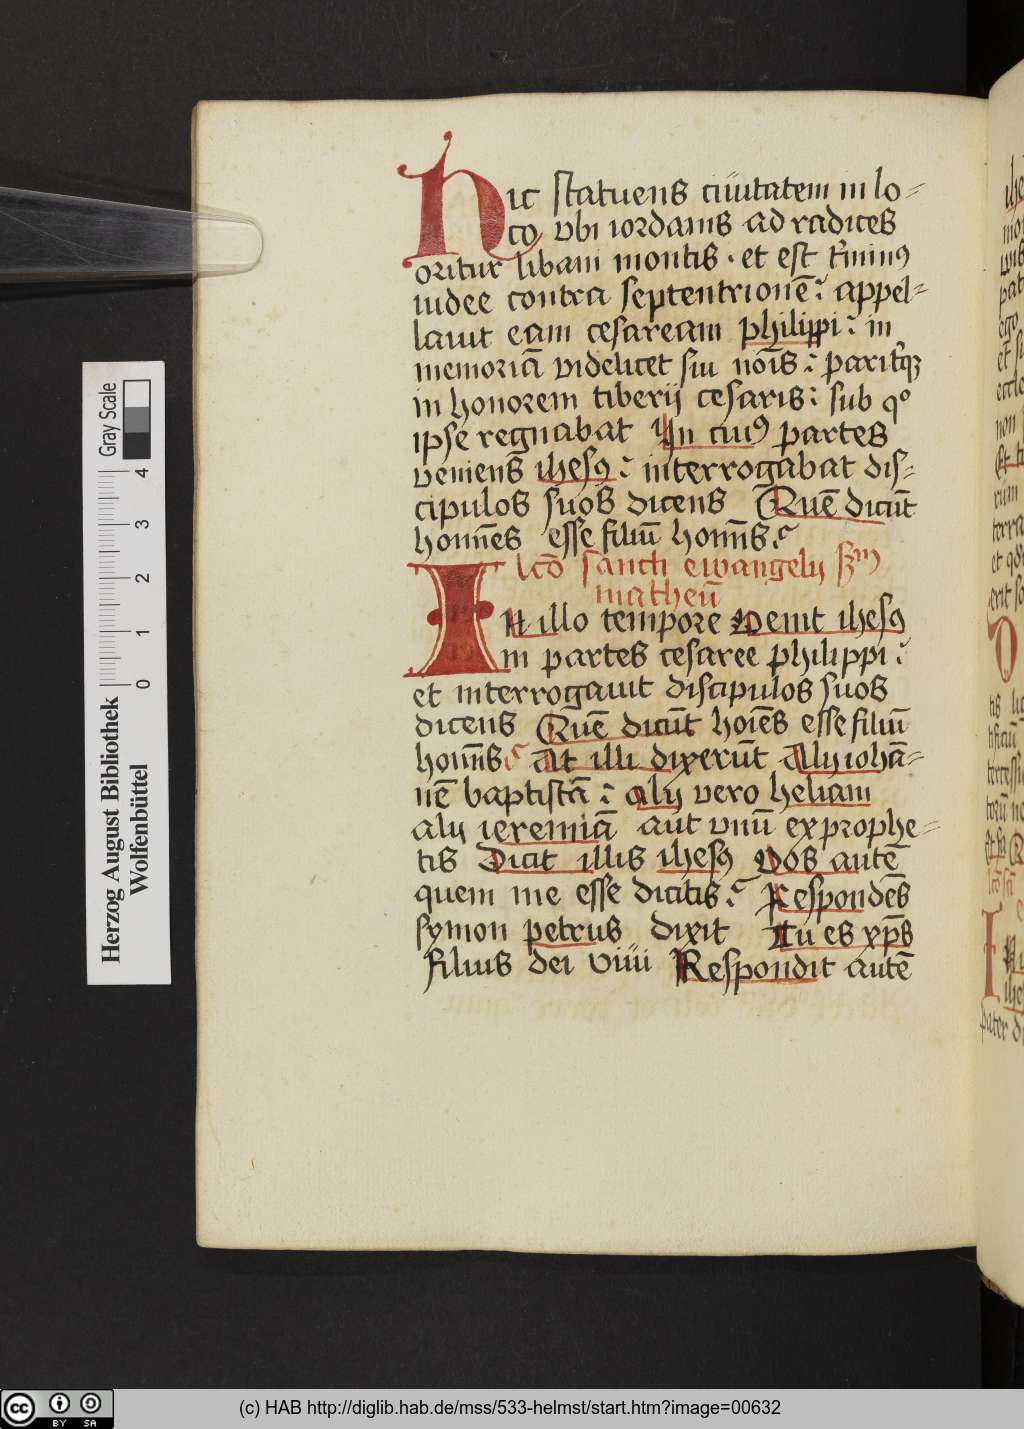 Hic statuens ciuitatem in lo=
co vbi iordanis ad radices
oritur libani montis · et est t̄minꝰ
iudee contra septentrionē: appel=
lauit eam cesaream philippi: in
memoriā videlicet sui noīs: parit̄qꝫ
in honorem tiberij cesaris: sub qͦ
ipse regnabat In cuiꝰ partes
veniens ihesꝰ: interrogabat dis=
cipulos suos dicens Quē dicūt
homīes esse filiū homīs?
lcō sancti ewangelij sm̄
matheū
IN illo tempore Uenit ihesꝰ
in partes cesaree philippi:
et interrogauit discipulos suos
dicens Quē dicūt hoīes esse filiū
homīs? At illi dixerūt Alij iohā=
nē baptistā: alij vero heliam
alij ieremiā aut vnū ex prophe=
tis Dicit illis ihesꝰ Uos autē
quem me esse dicitis? Respondēs
symon petrus dixit Tu es xp̄s
filius dei viui Respondit autē
Herzog August Bibliothek
Wolfenbüttel
0 1 2 3 4
Gray Scale
cc BY SA
(c) HAB http://diglib.hab.de/mss/533-helmst/start.htm?image=00632